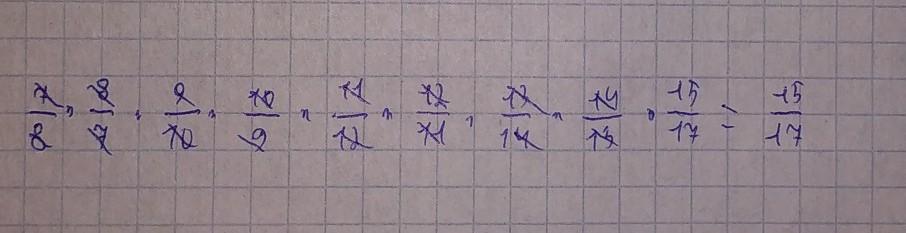 7/8 · 8/7 · 9/10 · 10/9 · 11/12 · 12/11 · 13/14 · 14/13 · 15/17 = 15/17